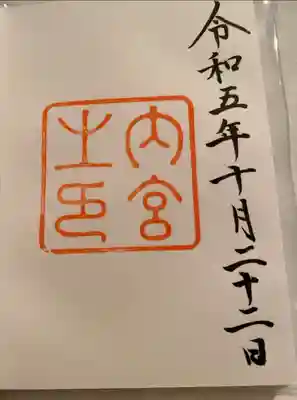 令和五年十月二十二日
内宮
之印